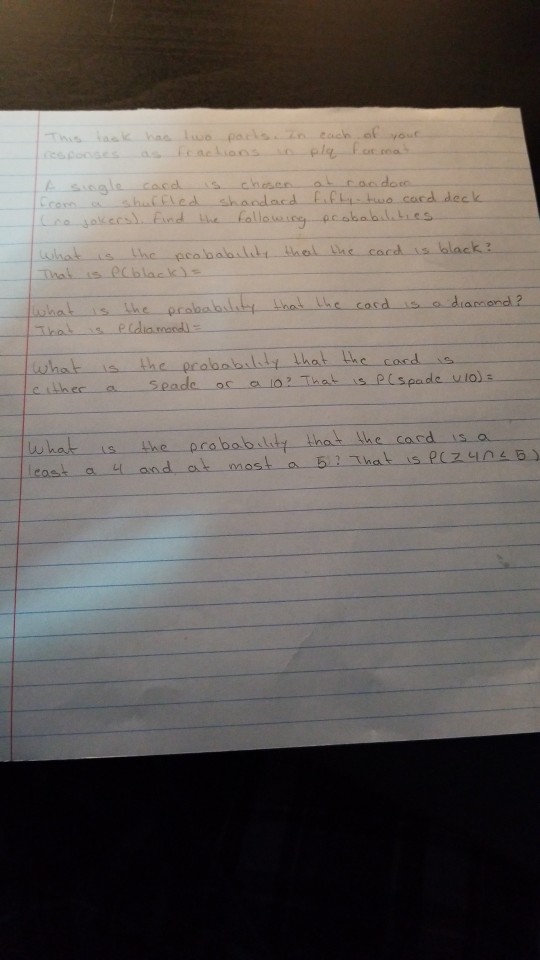 This task has two parts. In each of your
responses as fractions in p/q format
A single card is chosen at random
from a shuffled shandard fifty-two card deck
(no jokers). Find the following probabilities
What is the probability that the card is black?
That is P(black)=
What is the probability that the card is a diamond?
That is P(diamond)=
What is the probability that the card is
either a spade or a 10? That is P(spade ∪10)=
What is the probability that the card is a
least a 4 and at most a 5? That is P(≥4∩≤5)